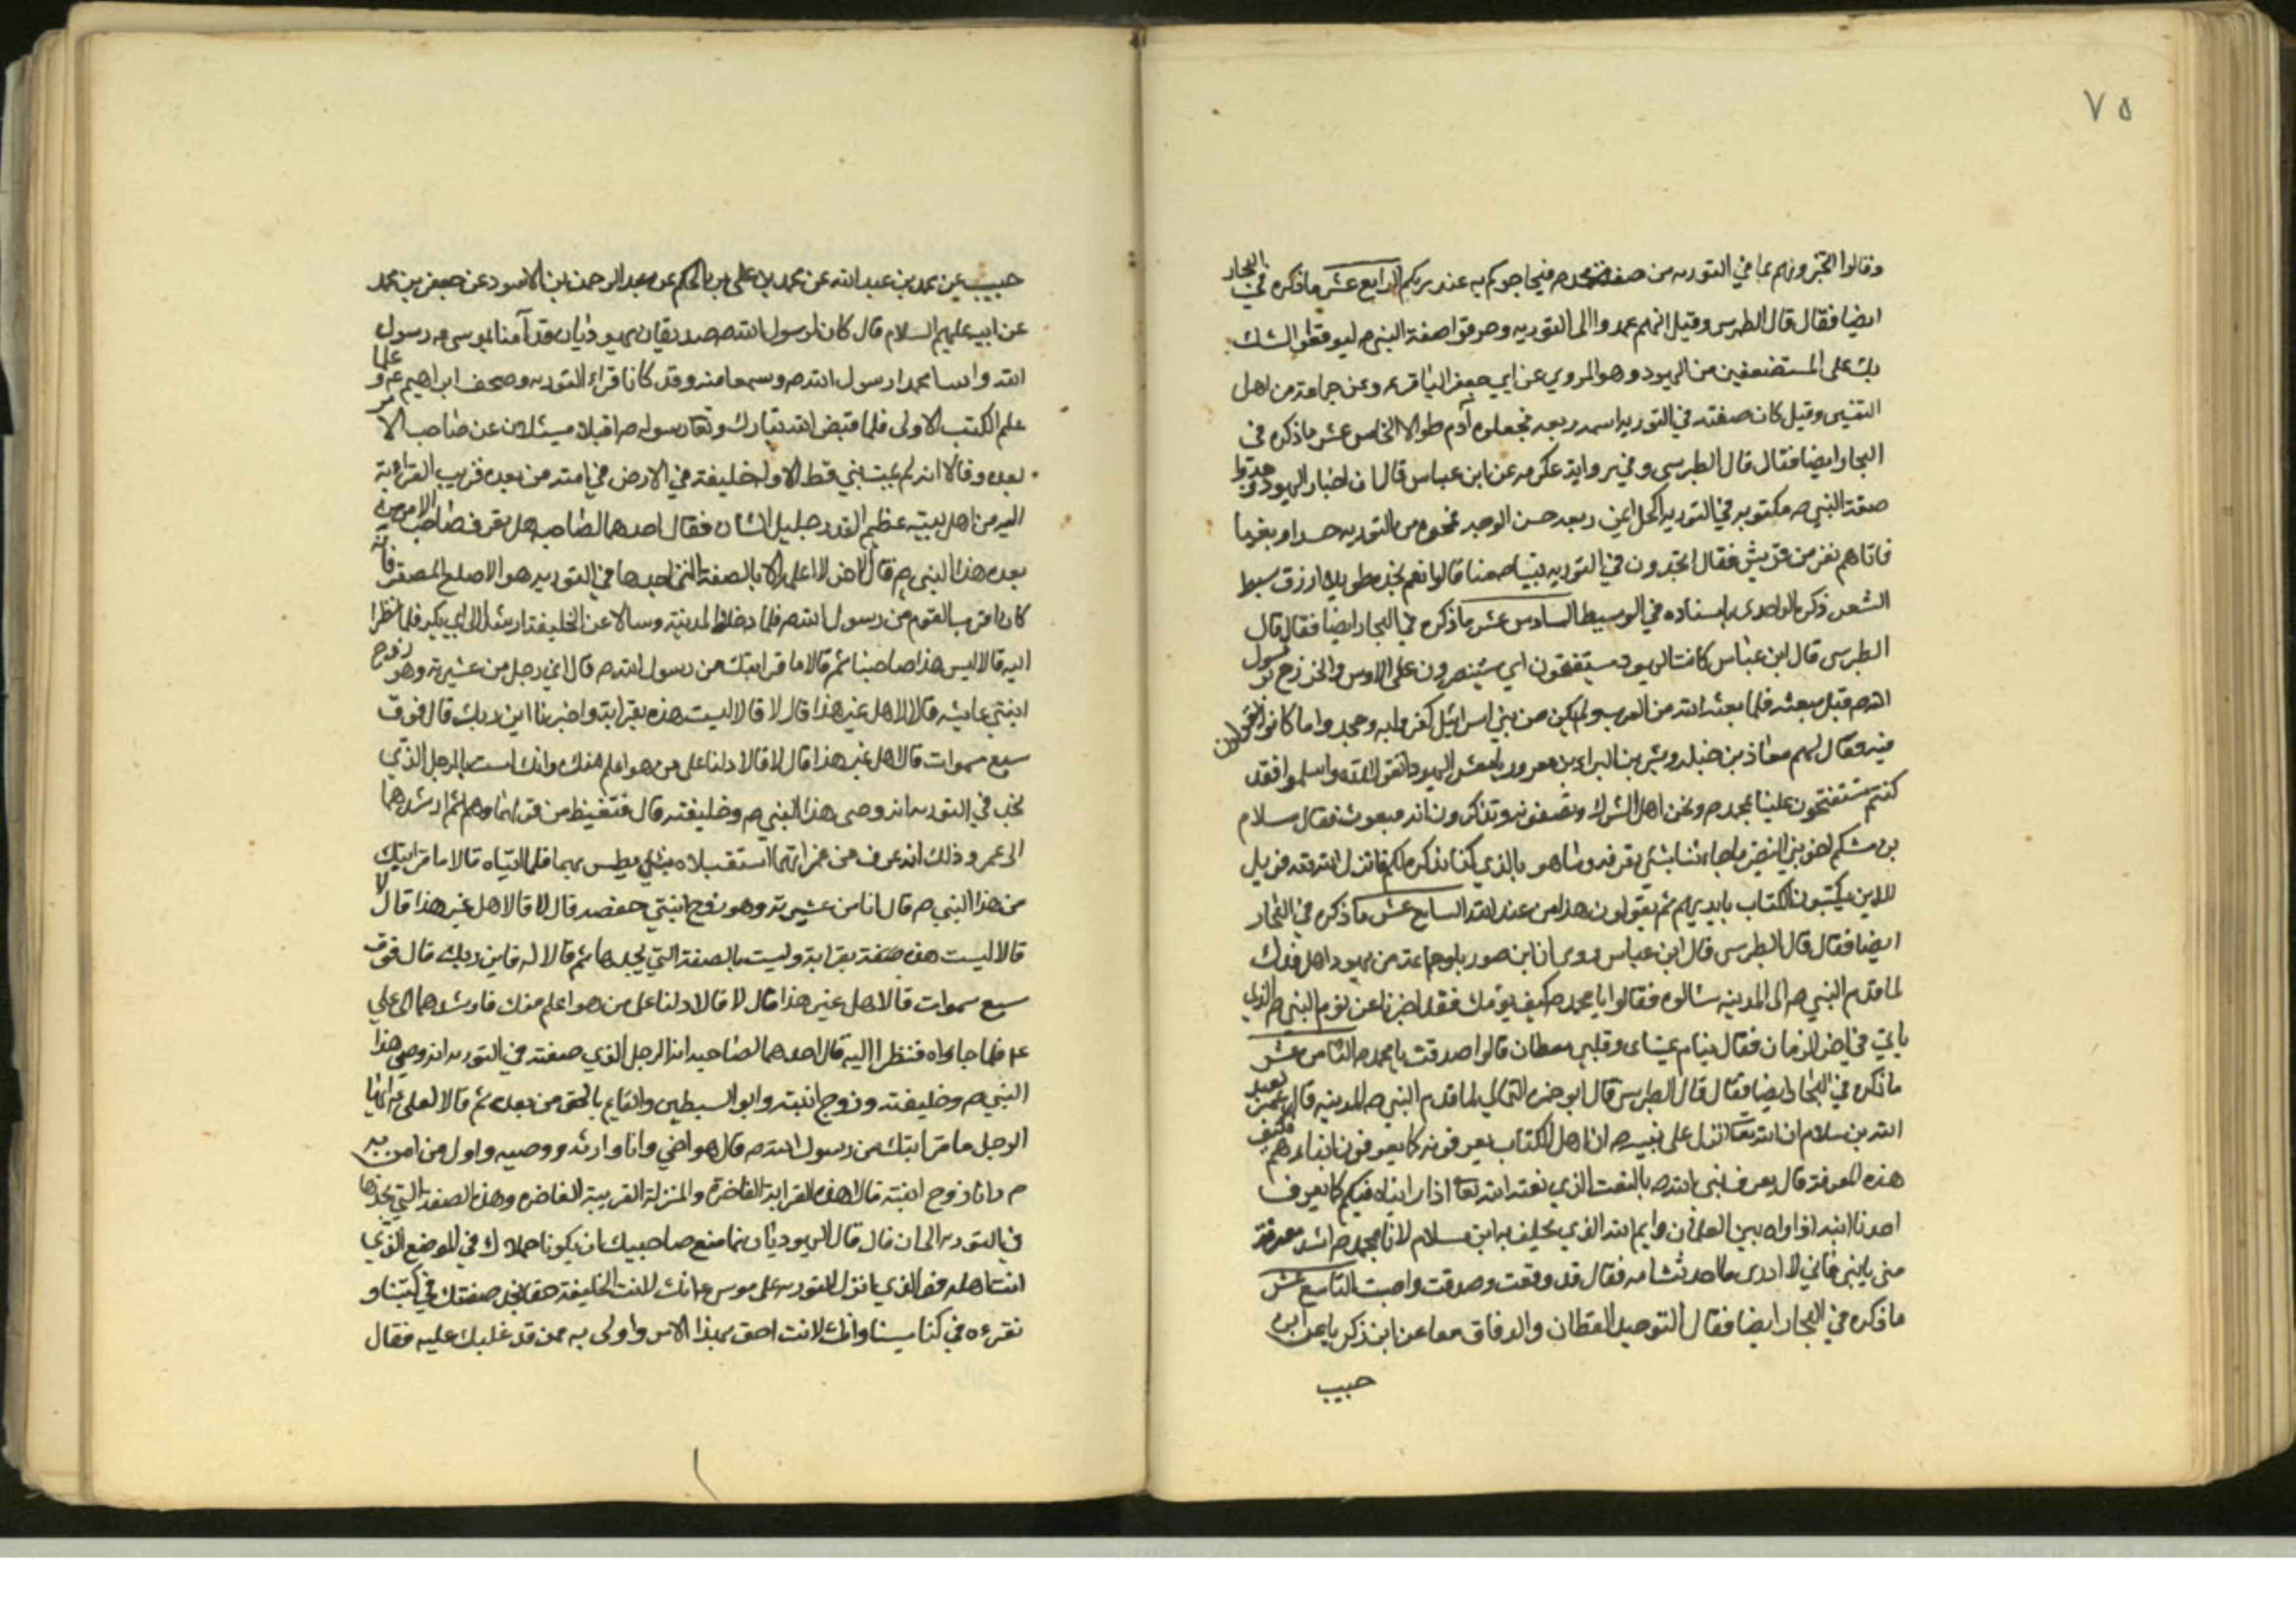 ٧٥
وقالوا اتخبرونهم بما في التوريه من صفة محمد ص فيحاجوكم به عند ربكم الرابع عشر ما ذكره في البحار
ايضا فقال قال الطبرسي وقيل انهم عمدوا الى التوريه وحرفوا صفة النبي ص ليوقعوا الشك
بذلك على المستضعفين من اليهود وهو المروي عن ابي جعفر الباقر ع وعن جماعة من اهل
التفسير وقيل كان صفته في التوريه اسمر ربعه فجعلوه آدم طوالا الخامس عشر ما ذكره في
البحار ايضا فقال قال الطبرسي وفي رواية عكرمه عن ابن عباس قال ان احبار اليهود وجدوا
صفة النبي ص مكتوبه في التوريه اكحل اعين ربعه حسن الوجه فمحوه من التوريه حسدا وبغيا
فاتاهم نفر من قريش فقال اتجدون في التوريه نبيا منا قالوا نعم نجده طويلا ازرق سبط
الشعر ذكره الواحدي باسناده في الوسيط السادس عشر ما ذكره في البحار ايضا فقال قال
الطبرسي قال ابن عباس كانت اليهود يستفتحون اي يستنصرون على الاوس والخزرج برسول
الله ص قبل مبعثه فلما بعثه الله من العرب ولم يكن من بني اسرائيل كفروا به وجحدوا ما كانوا يقولون
فيه فقال لهم معاذ بن جبل وبشر بن البراء بن معرور يا معشر اليهود اتقوا الله واسلموا فقد
كنتم تستفتحون علينا بمحمد ص ونحن اهل الشرك وتصفونه وتذكرون انه مبعوث فقال سلام
بن مشكم اخو بني النضير ما جاءنا بشئ نعرفه وما هو بالذي كنا نذكره لكم فانزل الله تعه فويل
للذين يكتبون الكتاب بايديهم ثم يقولون هذا من عند الله السابع عشر ما ذكره في البحار
ايضا فقال قال الطبرسي قال ابن عباس روى ان ابن صوريا وجماعة من يهود اهل فدك
لما قدم النبي ص الى المدينه سئالوه فقالوا يا محمد ص كيف نومك فقد اخبرنا عن نوم النبي ص الذي
ياتي في اخر الزمان فقال ينام عيناى وقلبي يقظان قالوا صدقت يا محمد ص الثامن عشر
ما ذكره في البحار ايضا فقال قال الطبرسي قال ابو حمزه الثمالي لما قدم النبي ص المدينه قال عمر لعبد
الله بن سلام ان الله تعا انزل على نبيه ص ان اهل الكتاب يعرفونه كما يعرفون ابناءهم فكيف
هذه المعرفة قال نعرف نبي الله ص بالنعت الذي نعته الله تعا اذا رايناه فيكم كما يعرف
احدنا ابنه اذا راه بين الغلمان وايم الله الذي يحلف به ابن سلام لانا بمحمد ص اشد معرفة
مني بابني فاني لا ادري ما احدثت امه فقال قد وفقت وصدقت واصبت التاسع عشر
ما ذكره في البحار ايضا فقال التوحيد القطان والدقاق معا عن ابن زكريا عن ابن
حبيب
حبيب عن محمد بن عبد الله عن محمد بن علي بن الحكم عن عبد الرحمن بن الاسود عن جعفر بن محمد
عن ابيه عليهم السلام قال كان لرسول الله ص صديقان يهوديان قد آمنا بموسى ع رسول
الله واتيا محمدا رسول الله ص وسمعا منه وقد كانا قراء التوريه وصحف ابراهيم ع وعلما
علم الكتب الاولى فلما قبض الله تبارك وتعا رسوله ص اقبلا يسئلان عن صاحب الامر
بعده وقالا انه لم يمت نبي قط الا وله خليفة في الارض في امته من بعده قريب القرابة
اليه من اهل بيته عظيم القدر جليل الشان فقال احدهما لصاحبه هل تعرف صاحب الامر من
بعد هذا النبي ص قال الاخر لا اعلمه الا بالصفة التي اجدها في التوريه هو الاصلع المصفر فانه
كان اقرب القوم من رسول الله ص فلما دخلا المدينة وسالا عن الخليفة ارشدا الى ابي بكر فلما نظرا
اليه قالا ليس هذا صاحبنا ثم قالا ما قرابتك من رسول الله ص قال اني رجل من عشيرته وهو زوج
ابنتي عايشه قالا هل غير هذا قال لا قالا ليست هذه بقرابة واخبرنا اين ربك قال فوق
سبع سموات قالا هل غير هذا قال لا قالا دلنا على من هو اعلم منك وانك لست بالرجل الذي
نجد في التوريه انه وصى هذا النبي ص وخليفته قال فتغيظ من قولهما وهم بهما ثم ارشدهما
الى عمر وذلك انه عرف من عمر انهما ان استقبلاه بشئ بطش بهما فلما اتياه قالا ما قرابتك
من هذا النبي ص قال انا من عشيرته وهو زوج ابنتي حفصه قال لا قالا هل غير هذا قال لا
قالا ليست هذه بقرابة وليست بالصفة التي نجدها ثم قالا له فاين ربك قال فوق
سبع سموات قالا هل غير هذا قال لا قالا دلنا على من هو اعلم منك فارشدهما الى علي
ع فلما جاءاه فنظرا اليه قال احدهما لصاحبه انه الرجل الذي صفته في التوريه انه وصي هذا
النبي ص وخليفته وزوج ابنته وابو السبطين والقايم بالحق من بعده ثم قالا لعلي ع ايها
الرجل ما قرابتك من رسول الله ص قال هو اخي وانا وارثه ووصيه واول من امن به
وانا زوج ابنته قالا هذه القرابة الفاخرة والمنزلة القريبة الفاخره وهذه الصفة التي نجدها
في التوريه الى ان قال قال اليهوديان فما منع صاحبيك ان يكونا جعلاك في الموضع الذي
انت اهله فو الذي انزل التوريه على موسى ع انك لانت الخليفة حقا نجد صفتك في كتبنا و
نقرءه في كنايسنا وانك لانت احق بهذا الامر واولى به ممن قد غلبك عليه فقال